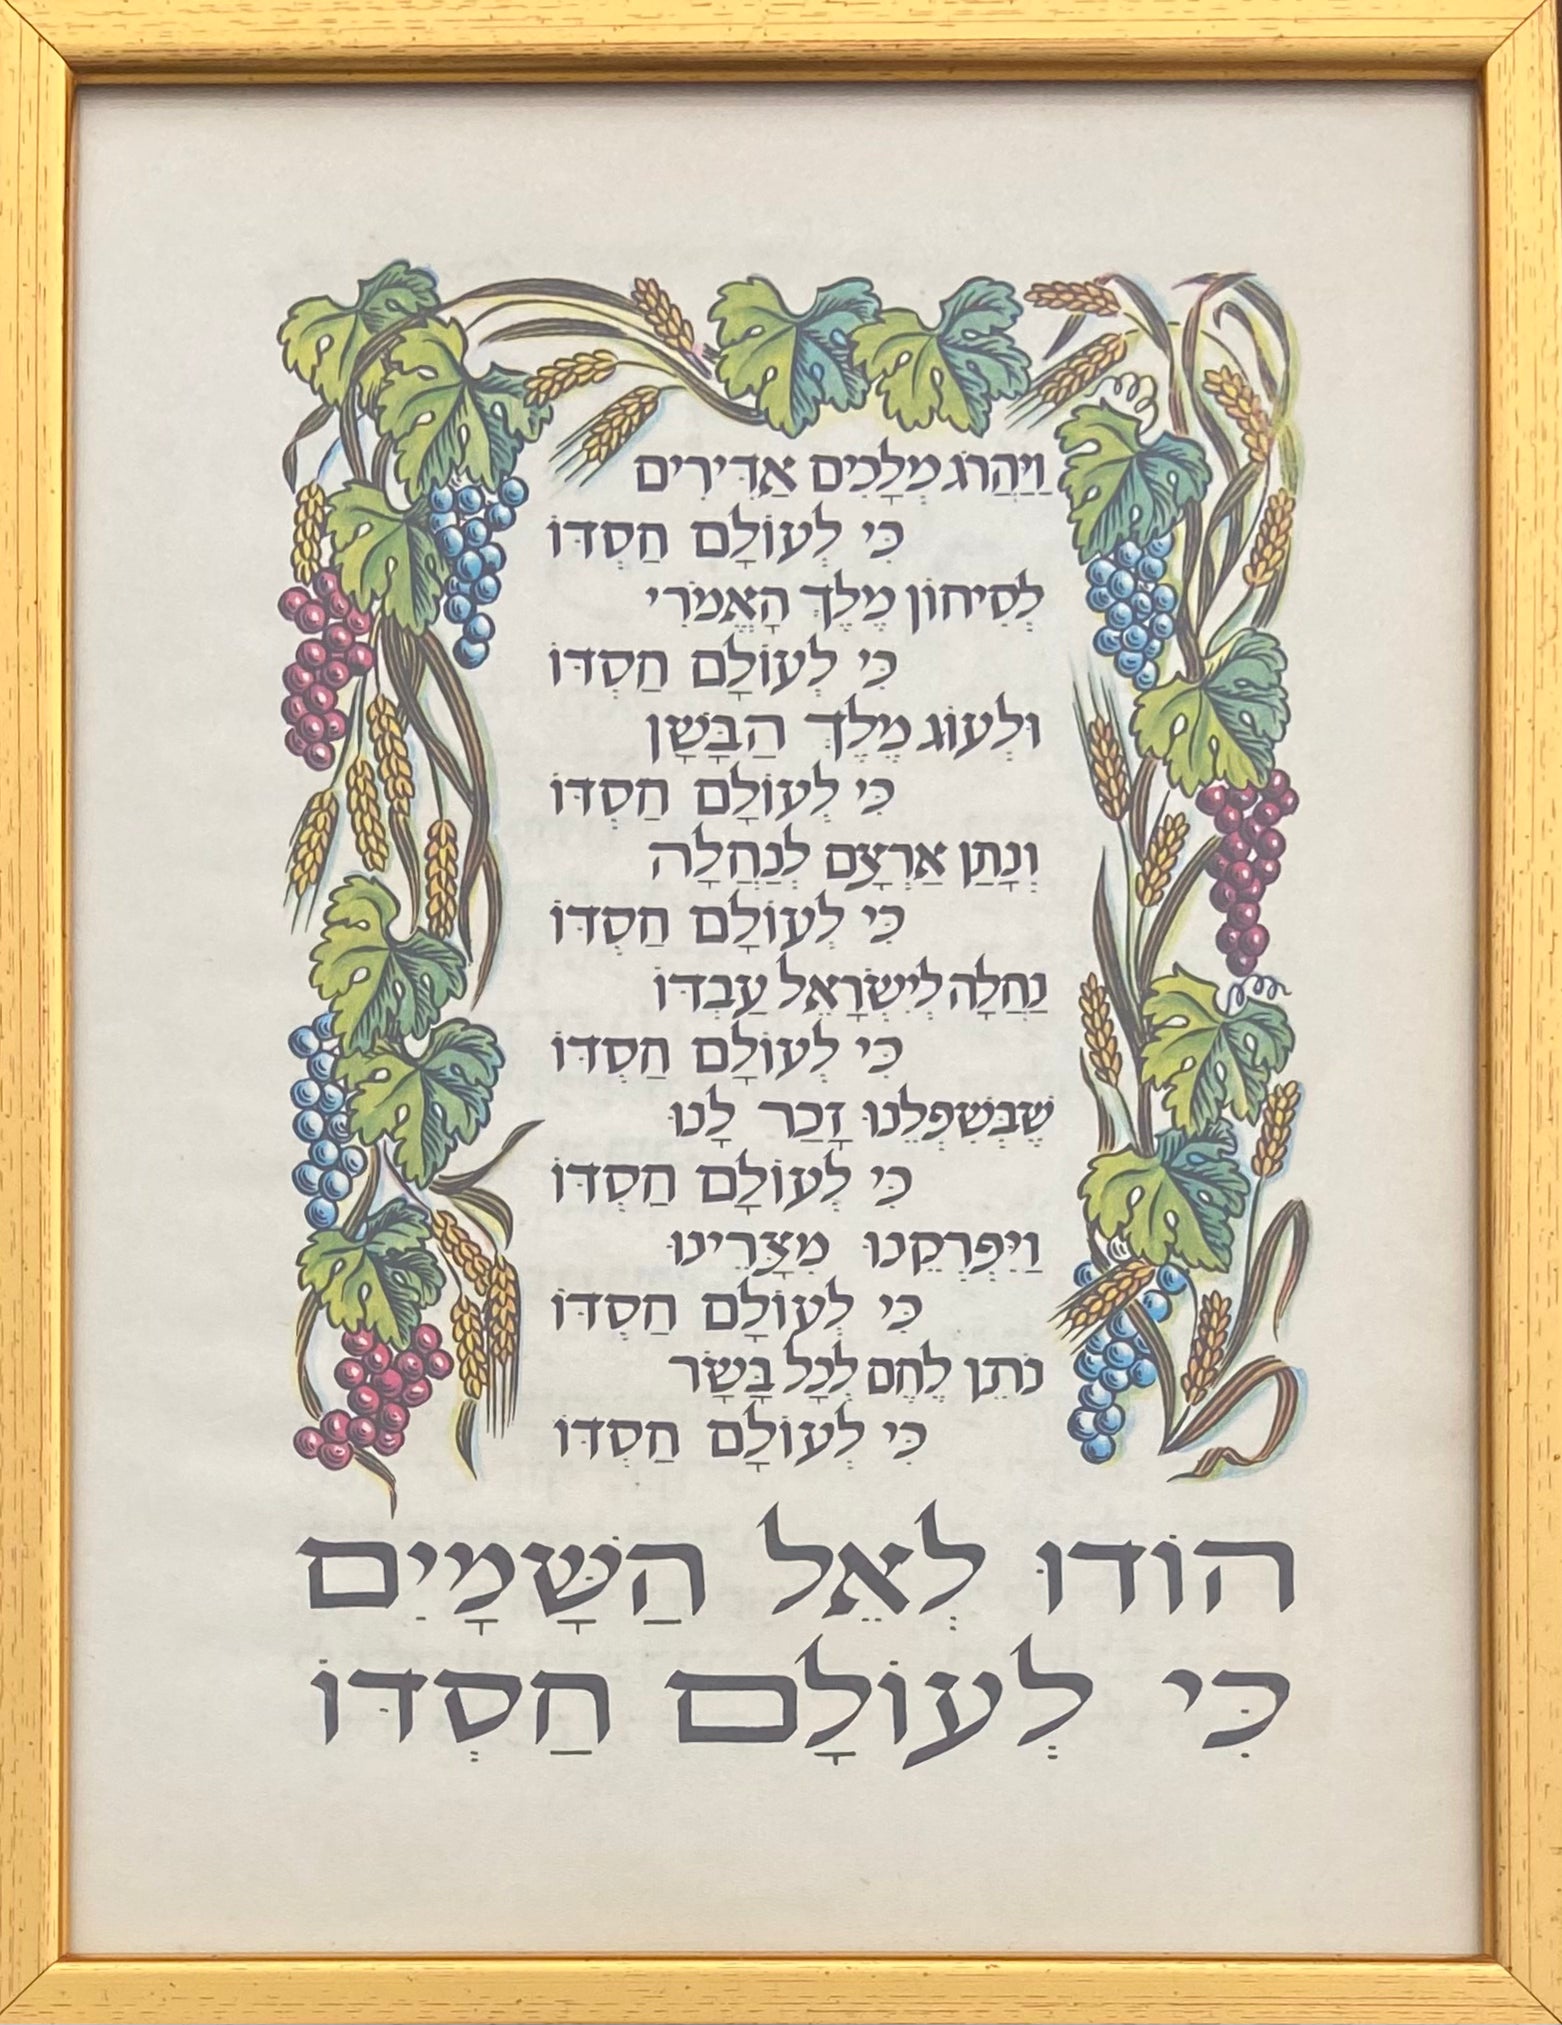 וַיַּהֲרֹג מְלָכִים אַדִּירִים
כִּי לְעוֹלָם חַסְדּוֹ
לְסִיחוֹן מֶלֶךְ הָאֱמֹרִי
כִּי לְעוֹלָם חַסְדּוֹ
וּלְעוֹג מֶלֶךְ הַבָּשָׁן
כִּי לְעוֹלָם חַסְדּוֹ
וְנָתַן אַרְצָם לְנַחֲלָה
כִּי לְעוֹלָם חַסְדּוֹ
נַחֲלָה לְיִשְׂרָאֵל עַבְדּוֹ
כִּי לְעוֹלָם חַסְדּוֹ
שֶׁבְּשִׁפְלֵנוּ זָכַר לָנוּ
כִּי לְעוֹלָם חַסְדּוֹ
וַיִּפְרְקֵנוּ מִצָּרֵינוּ
כִּי לְעוֹלָם חַסְדּוֹ
נֹתֵן לֶחֶם לְכָל בָּשָׂר
כִּי לְעוֹלָם חַסְדּוֹ
הוֹדוּ לְאֵל הַשָּׁמָיִם
כִּי לְעוֹלָם חַסְדּוֹ